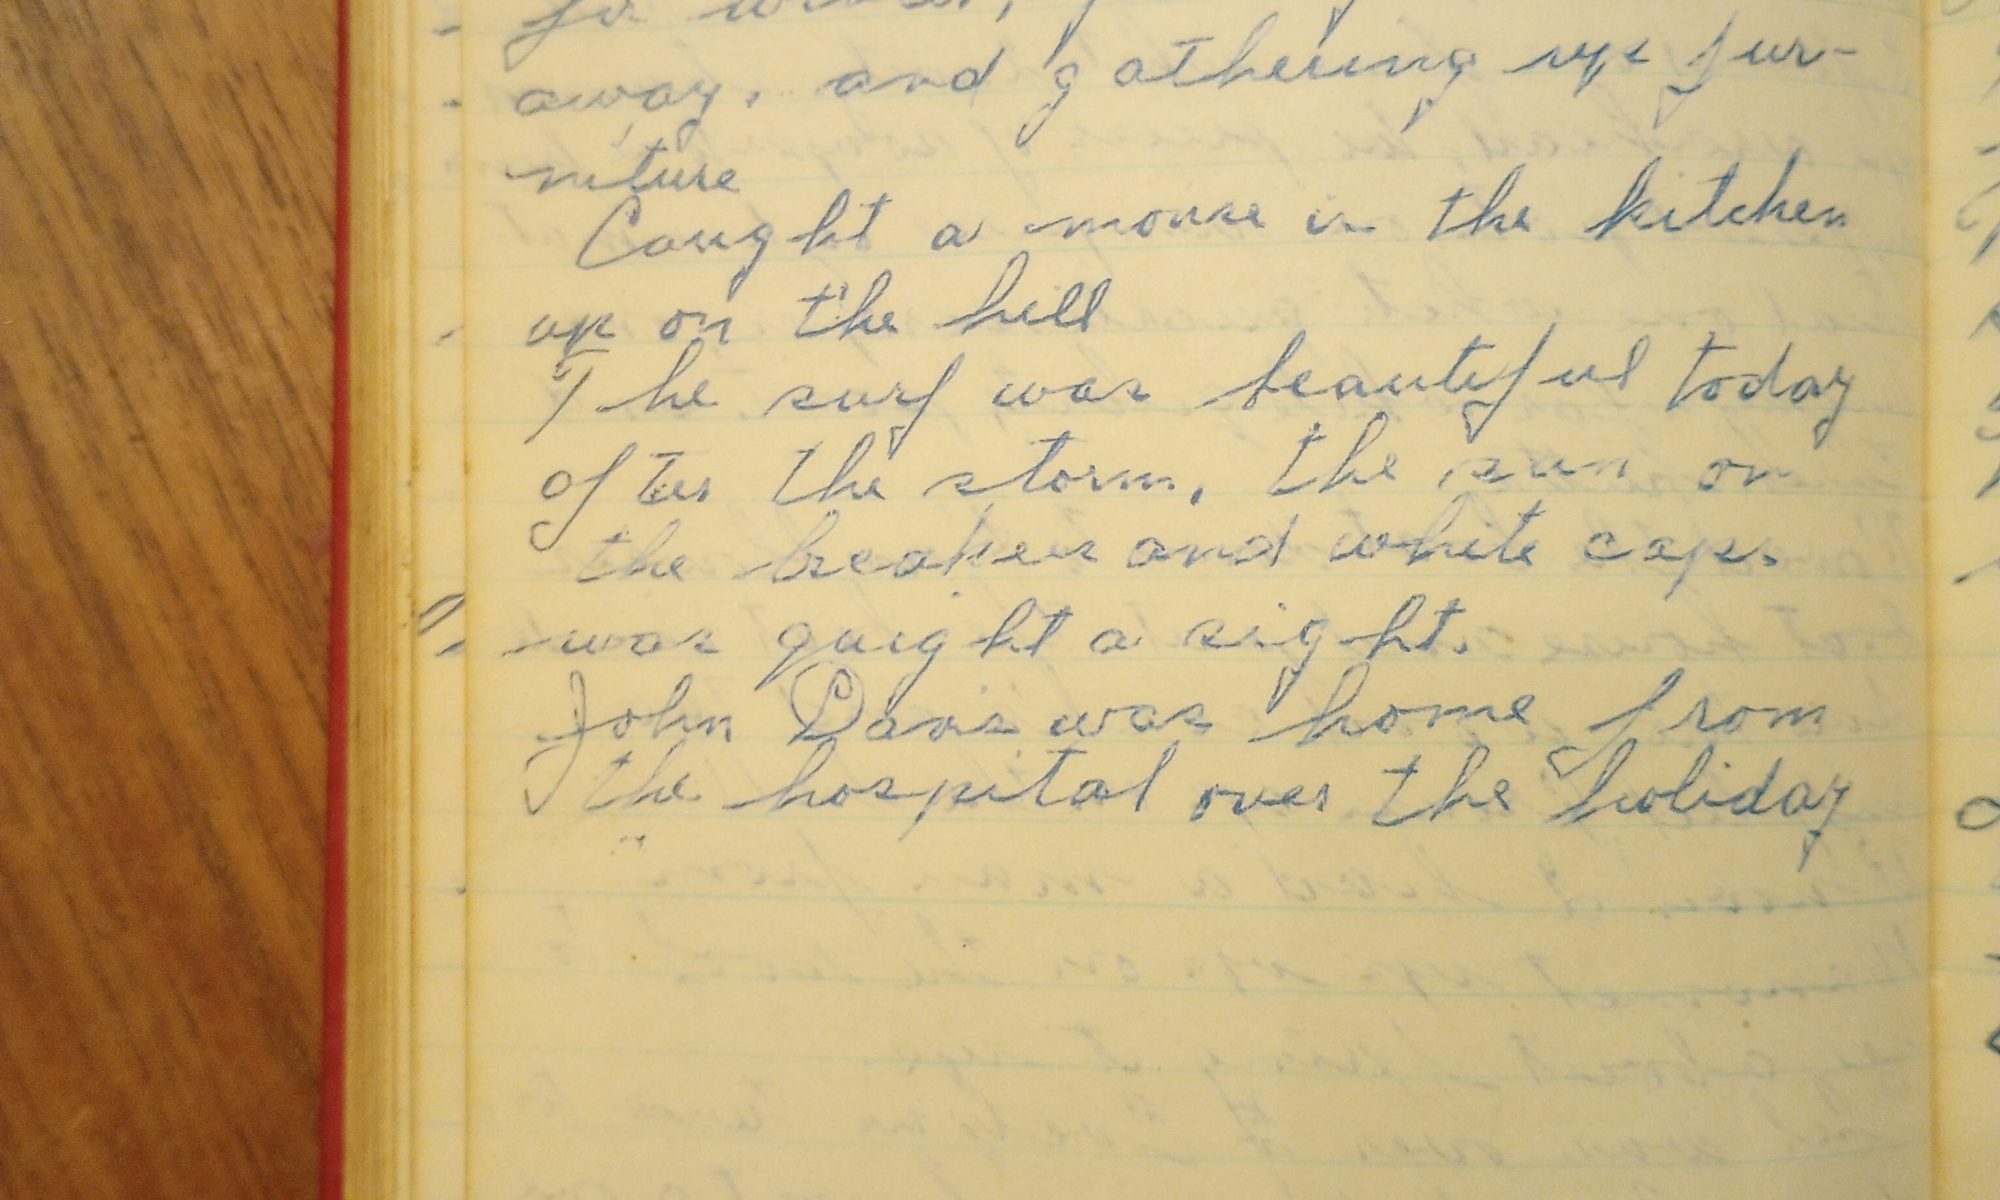 away, and gathering up fur-
niture
Caught a mouse in the kitchen
up on the hill
The surf was beautiful today
after the storm, the sun on
the breakers and white caps
was quight a sight.
John Davis was home from
the hospital over the holiday